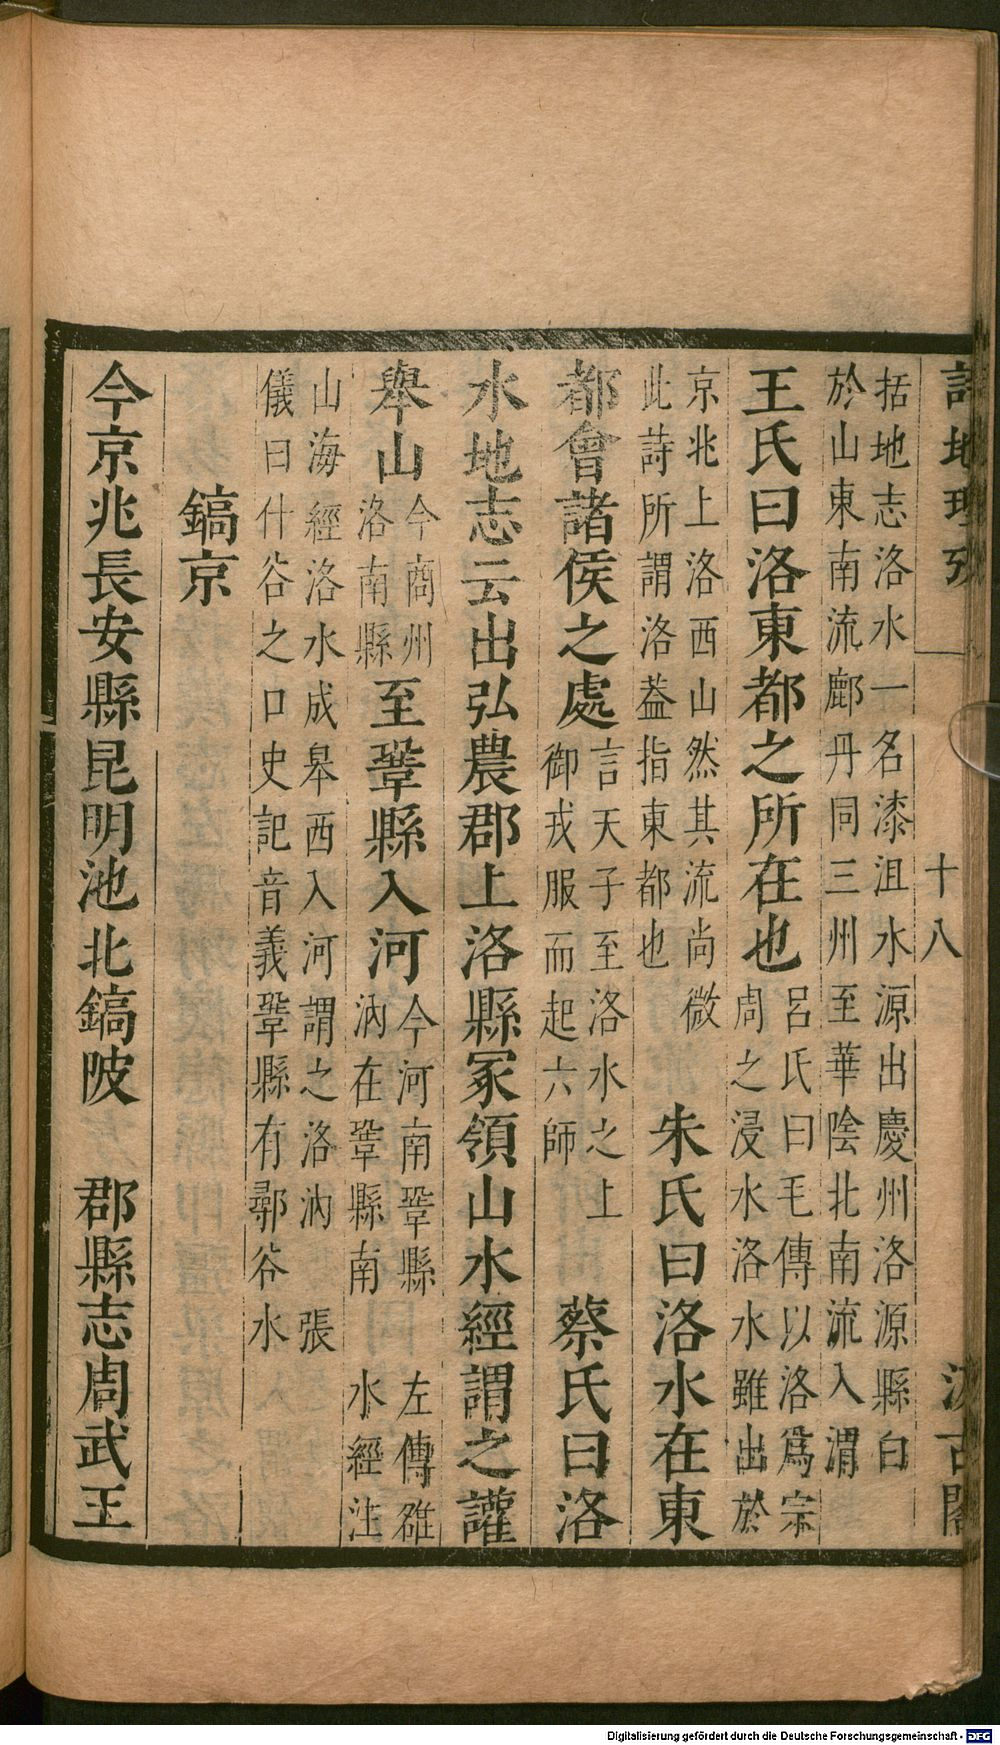 詩地理攷　十八　汲古閣
括地志洛水一名漆沮水源出慶州洛源縣白
於山東南流鄜丹同三州至華陰北南流入渭
王氏曰洛東都之所在也
呂氏曰毛傳以洛爲宗
周之浸水洛水雖出於
京兆上洛西山然其流尚微
此詩所謂洛葢指東都也
朱氏曰洛水在東
都會諸侯之處
言天子至洛水之上
御戎服而起六師
蔡氏曰洛
水地志云出弘農郡上洛縣冢領山水經謂之讙
舉山
今商州
洛南縣
至鞏縣入河
今河南鞏縣　左傳雒
汭在鞏縣南　水經注
山海經洛水成皋西入河謂之洛汭　張
儀曰什谷之口史記音義鞏縣有鄩谷水
鎬京
今京兆長安縣昆明池北鎬陂　郡縣志周武王
Digitalisierung gefördert durch die Deutsche Forschungsgemeinschaft - DFG